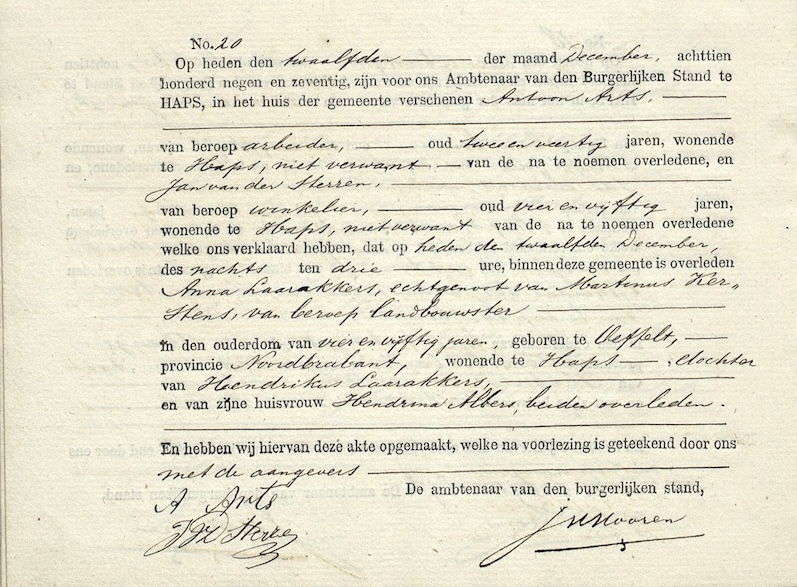 No. 20
Op heden den twaalfden der maand December, achttien
honderd negen en zeventig, zijn voor ons Ambtenaar van den Burgerlijken Stand te
HAPS, in het huis der gemeente verschenen Antoon Arts,
van beroep arbeider, oud twee en veertig jaren, wonende
te Haps, niet verwant van de na te noemen overledene, en
Jan van der Sterren,
van beroep winkelier, oud vier en vijftig jaren,
wonende te Haps, niet verwant van de na te noemen overledene
welke ons verklaard hebben, dat op heden den twaalfden December,
des nachts ten drie ure, binnen deze gemeente is overleden
Anna Laarakkers, echtgenoot van Martinus Ker=
stens, van beroep landbouwster
in den ouderdom van vier en vijftig jaren, geboren te Oeffelt,
provincie Noordbrabant, wonende te Haps, dochter
van Hendrikus Laarakkers,
en van zijne huisvrouw Hendrina Albers, beiden overleden.
En hebben wij hiervan deze akte opgemaakt, welke na voorlezing is geteekend door ons
met de aangevers
De ambtenaar van den burgerlijken stand,
A Arts